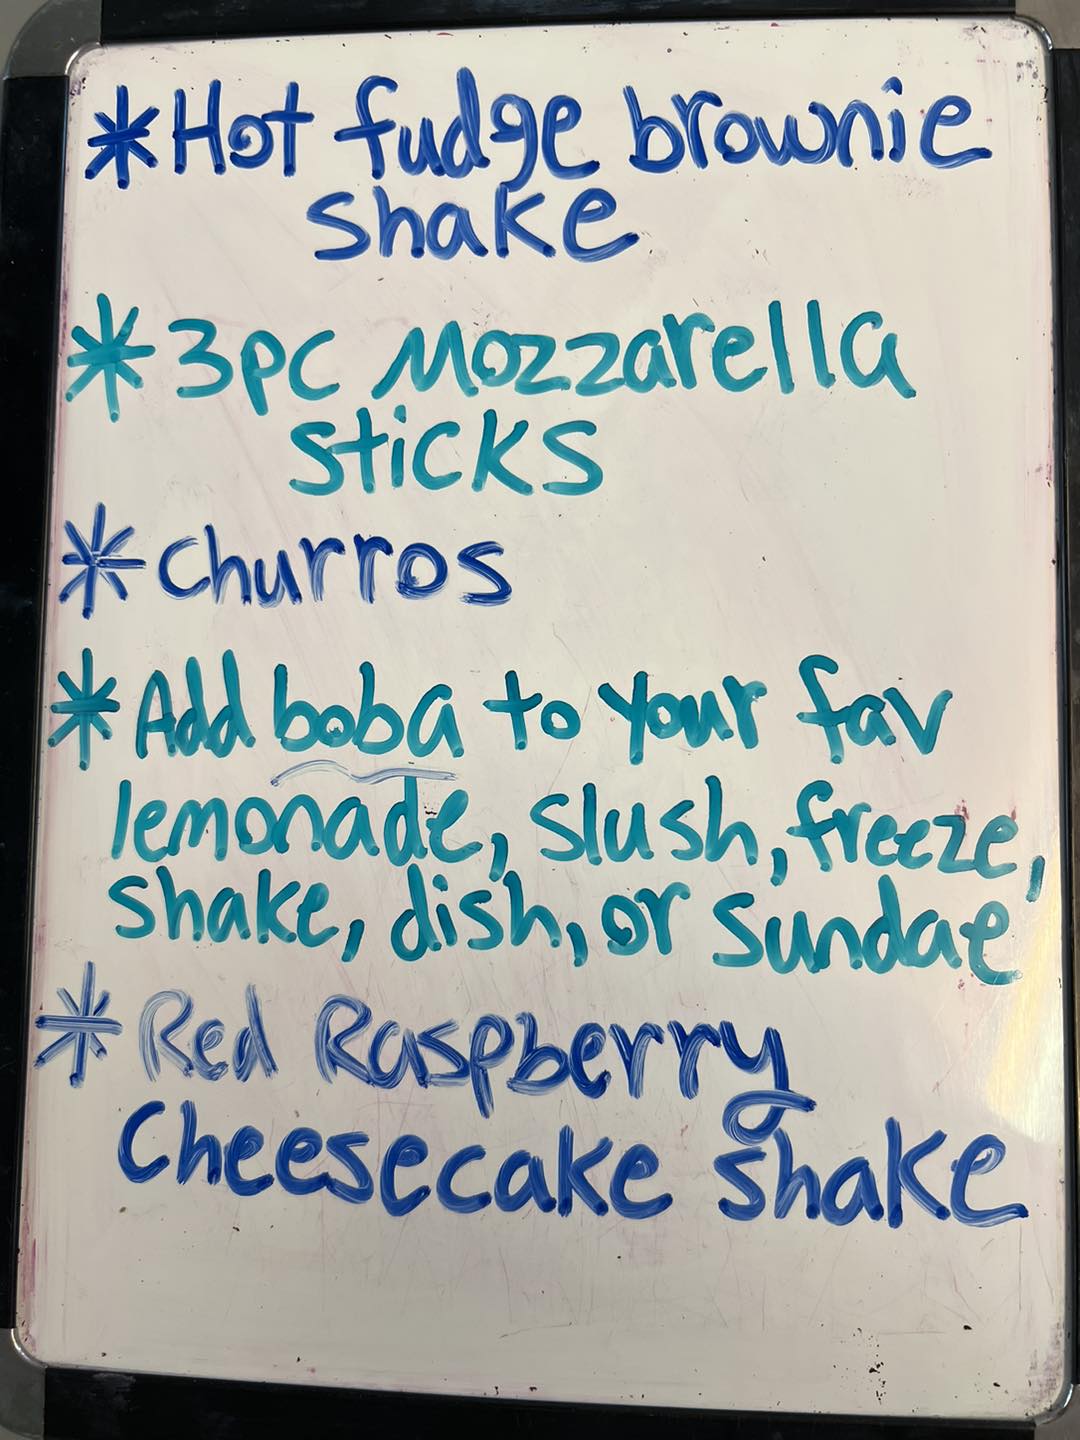 *Hot fudge brownie
shake
*3pc Mozzarella
sticks
*Churros
*Add boba to your fav
lemonade, slush, freeze,
shake, dish, or sundae
*Red Raspberry
Cheesecake shake